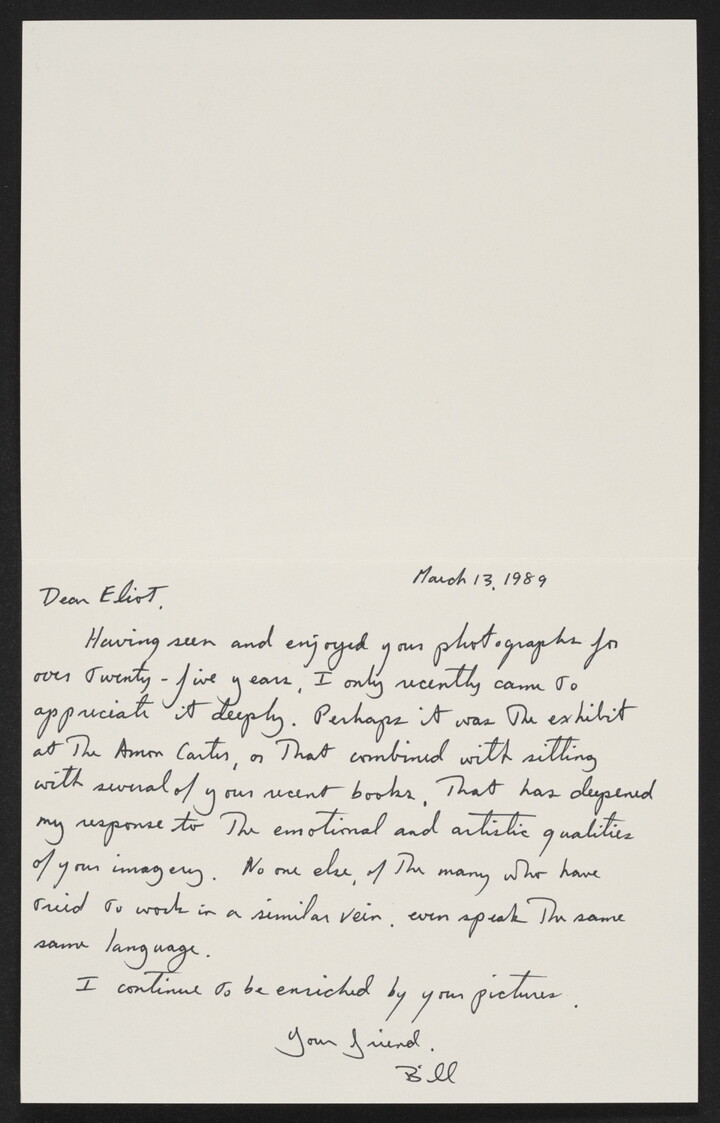 March 13, 1989
Dear Eliot,
Having seen and enjoyed your photographs for
over twenty-five years, I only recently came to
appreciate it deeply. Perhaps it was the exhibit
at the Amon Carter, or that combined with sitting
with several of your recent books, that has deepened
my response to the emotional and artistic qualities
of your imagery. No one else, of the many who have
tried to work in a similar vein, even speak the same
same language.
I continue to be enriched by your pictures.
Your friend,
Bill